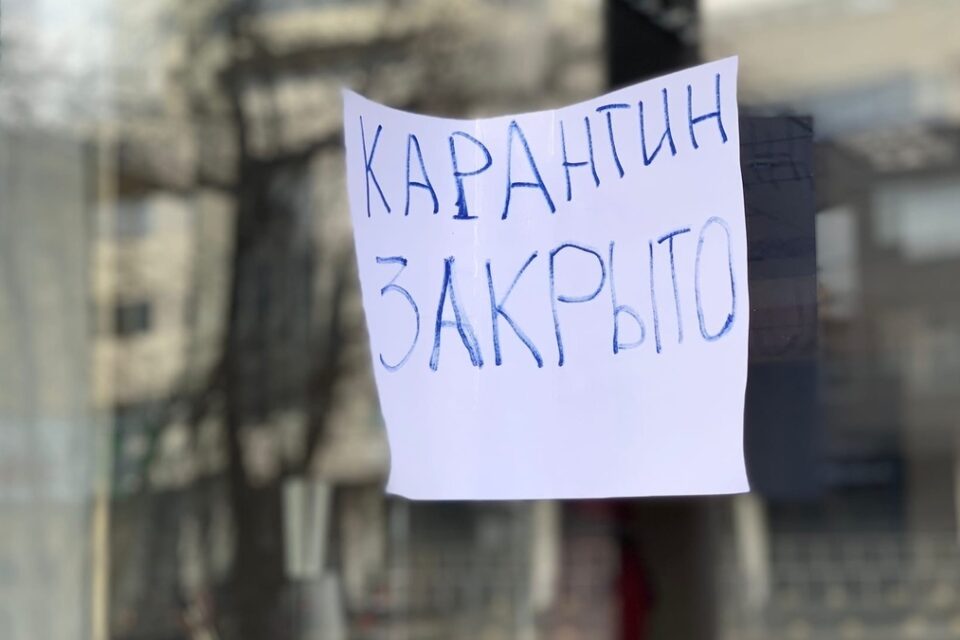 КАРАНТИН
ЗАКРЫТО